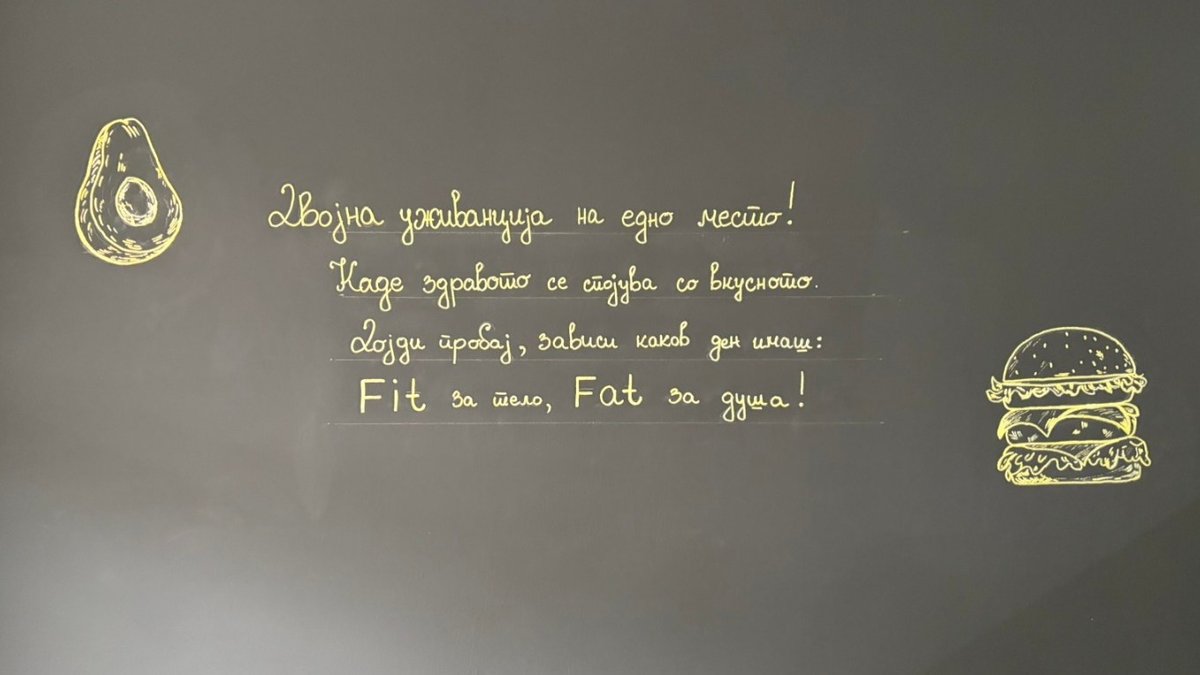 Двојна уживанција на едно место!
Каде здравото се спојува со вкусното.
Дојди пробај, зависи каков ден имаш:
Fit за тело, Fat за душа!